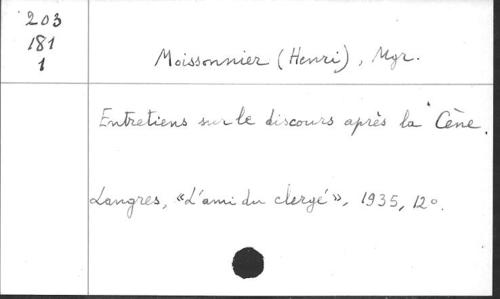 203
181
1
Moissonnier (Henri), Mgr.
Entretiens sur le discours après la Cène.
Langres, «L'ami du clergé», 1935, 12°.